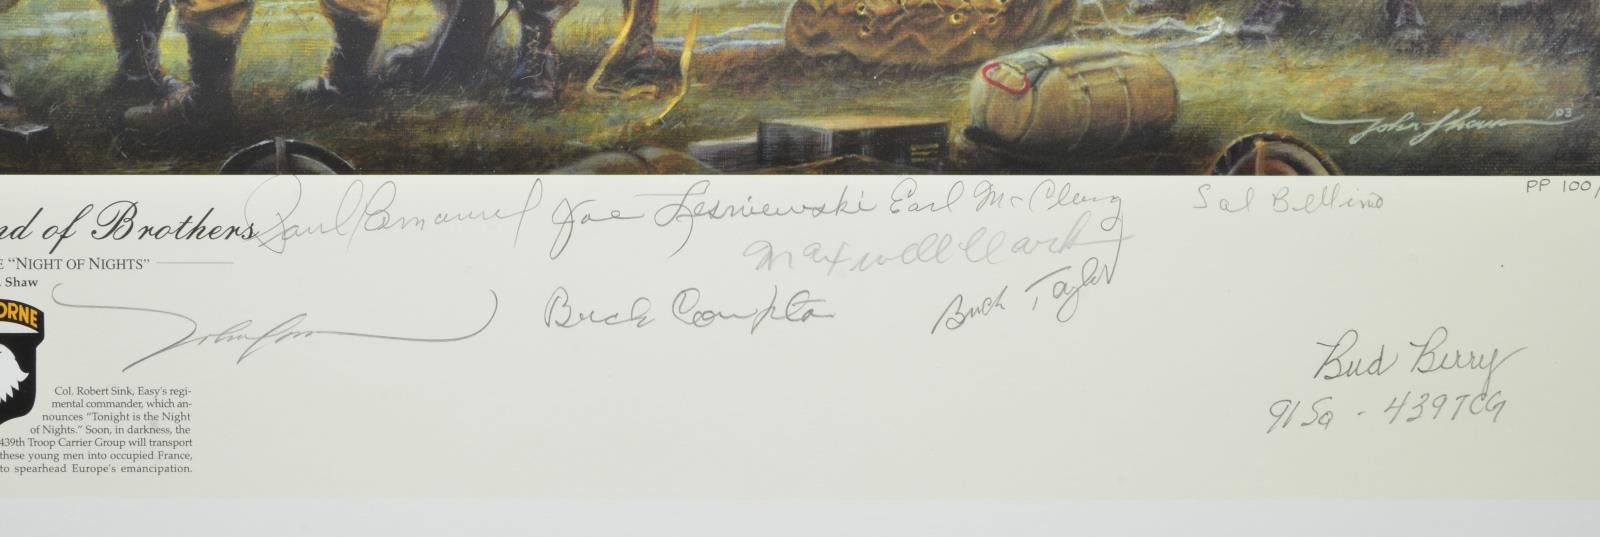 John Shaw '03
PP 100/
nd of Brothers
E "NIGHT OF NIGHTS"
. Shaw
ORNE
Paul Emanuel Joe Lesniewski Earl McClung Sal Bellino
Maxwell Clark
Buck Compton Buck Taylor
Bud Berry
91 Sq - 439 TCG
Col. Robert Sink, Easy's regi-
mental commander, which an-
nounces "Tonight is the Night
of Nights." Soon, in darkness, the
439th Troop Carrier Group will transport
these young men into occupied France,
to spearhead Europe's emancipation.